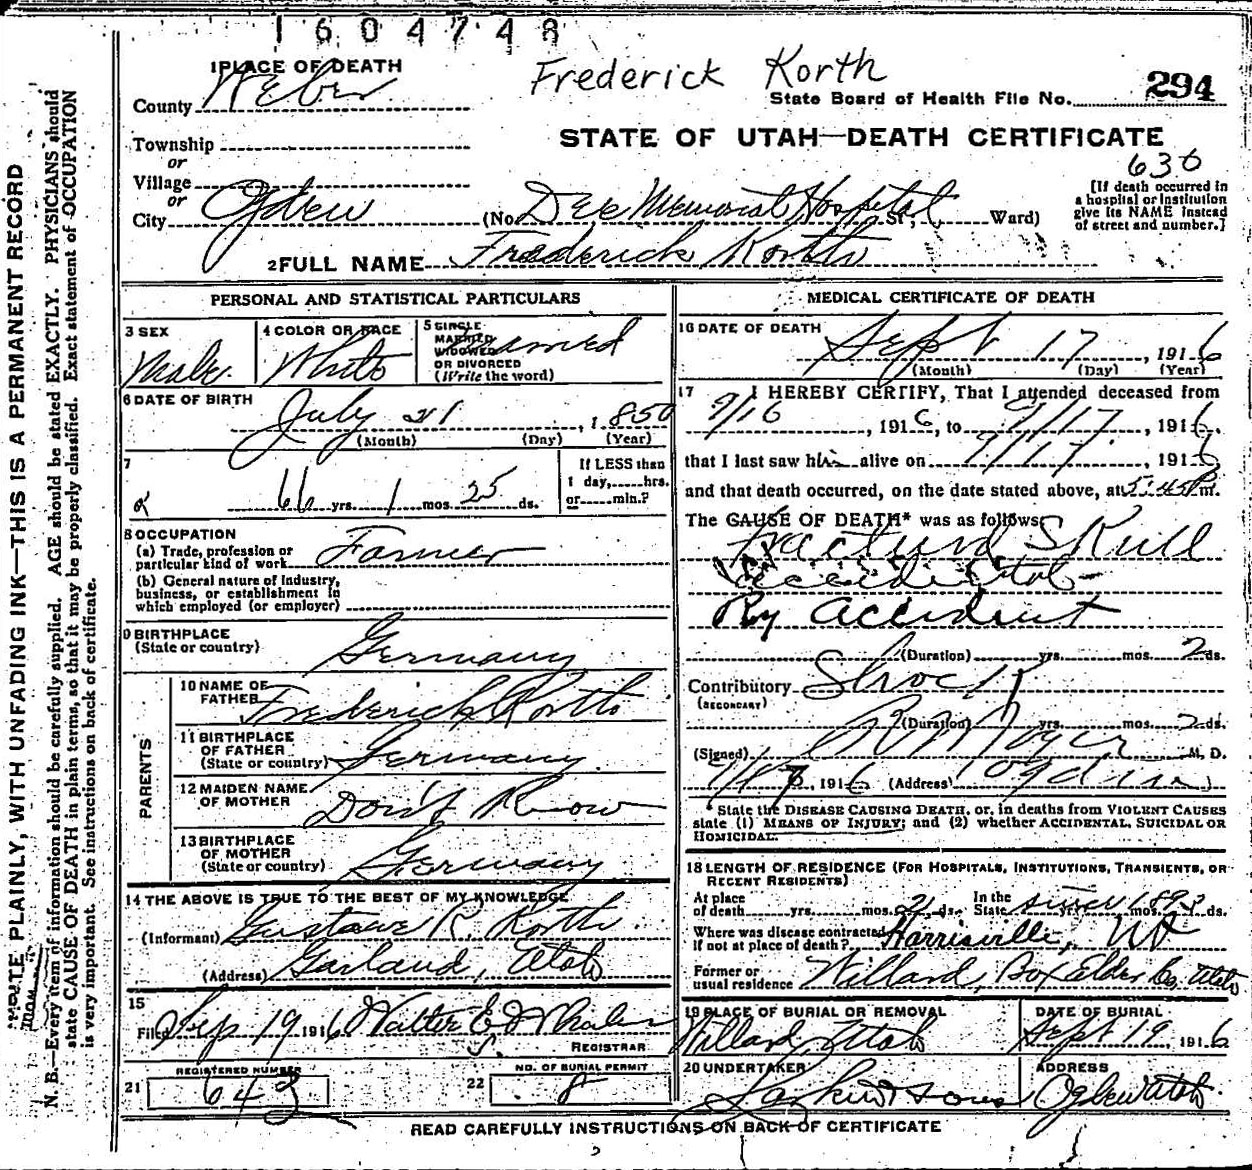 1604748
1 PLACE OF DEATH
Frederick Korth
County Weber
State Board of Health File No. 294
STATE OF UTAH—DEATH CERTIFICATE
Township
or
Village
or
City Ogden (No. Dee Memorial Hospital St., Ward)
636
[If death occurred in
a hospital or institution
give its NAME instead
of street and number.]
2 FULL NAME Frederick Korth
PERSONAL AND STATISTICAL PARTICULARS
3 SEX
Male
4 COLOR OR RACE
White
5 SINGLE
MARRIED
WIDOWED
OR DIVORCED
(Write the word)
6 DATE OF BIRTH
July 21, 1850
(Month) (Day) (Year)
7
66 yrs. 1 mos. 25 ds.
If LESS than
1 day, hrs.
or min.?
8 OCCUPATION
(a) Trade, profession or
particular kind of work Farmer
(b) General nature of industry,
business, or establishment in
which employed (or employer)
9 BIRTHPLACE
(State or country) Germany
PARENTS
10 NAME OF
FATHER Frederick Korth
11 BIRTHPLACE
OF FATHER
(State or country) Germany
12 MAIDEN NAME
OF MOTHER Don't Know
13 BIRTHPLACE
OF MOTHER
(State or country) Germany
14 THE ABOVE IS TRUE TO THE BEST OF MY KNOWLEDGE
(Informant) Gustave R. Korth
(Address) Garland, Utah
15
Filed Sep 19 1916 Walter E.
REGISTRAR
REGISTERED NUMBER
21 643
NO. OF BURIAL PERMIT
22 8
MEDICAL CERTIFICATE OF DEATH
16 DATE OF DEATH
Sept 17, 1916
(Month) (Day) (Year)
17 I HEREBY CERTIFY, That I attended deceased from
9/16, 1916, to 9/17, 1916,
that I last saw him alive on 9/17, 1916
and that death occurred, on the date stated above, at 5:45 P m.
The CAUSE OF DEATH* was as follows:
Fractured Skull
accidental
By accident
(Duration) yrs. mos. 2 ds.
Contributory Shock
(SECONDARY)
(Duration) yrs. mos. 2 ds.
(Signed) M. D.
1916 (Address) Ogden
State the DISEASE CAUSING DEATH, or, in deaths from VIOLENT CAUSES
state (1) MEANS OF INJURY; and (2) whether ACCIDENTAL, SUICIDAL OR
HOMICIDAL.
18 LENGTH OF RESIDENCE (FOR HOSPITALS, INSTITUTIONS, TRANSIENTS, OR
RECENT RESIDENTS)
At place
of death yrs. mos. 21 ds. In the
State since 1893 yrs. mos. ds.
Where was disease contracted
if not at place of death? Harrisville, Ut
Former or
usual residence Willard, Box Elder Co, Utah
19 PLACE OF BURIAL OR REMOVAL
Willard, Utah
DATE OF BURIAL
Sept 19, 1916
20 UNDERTAKER
Larkin & Sons
ADDRESS
Ogden Utah
READ CAREFULLY INSTRUCTIONS ON BACK OF CERTIFICATE
WRITE PLAINLY, WITH UNFADING INK—THIS IS A PERMANENT RECORD
N. B.—Every item of information should be carefully supplied. AGE should be stated EXACTLY. PHYSICIANS should
state CAUSE OF DEATH in plain terms, so that it may be properly classified. Exact statement of OCCUPATION
is very important. See instructions on back of certificate.